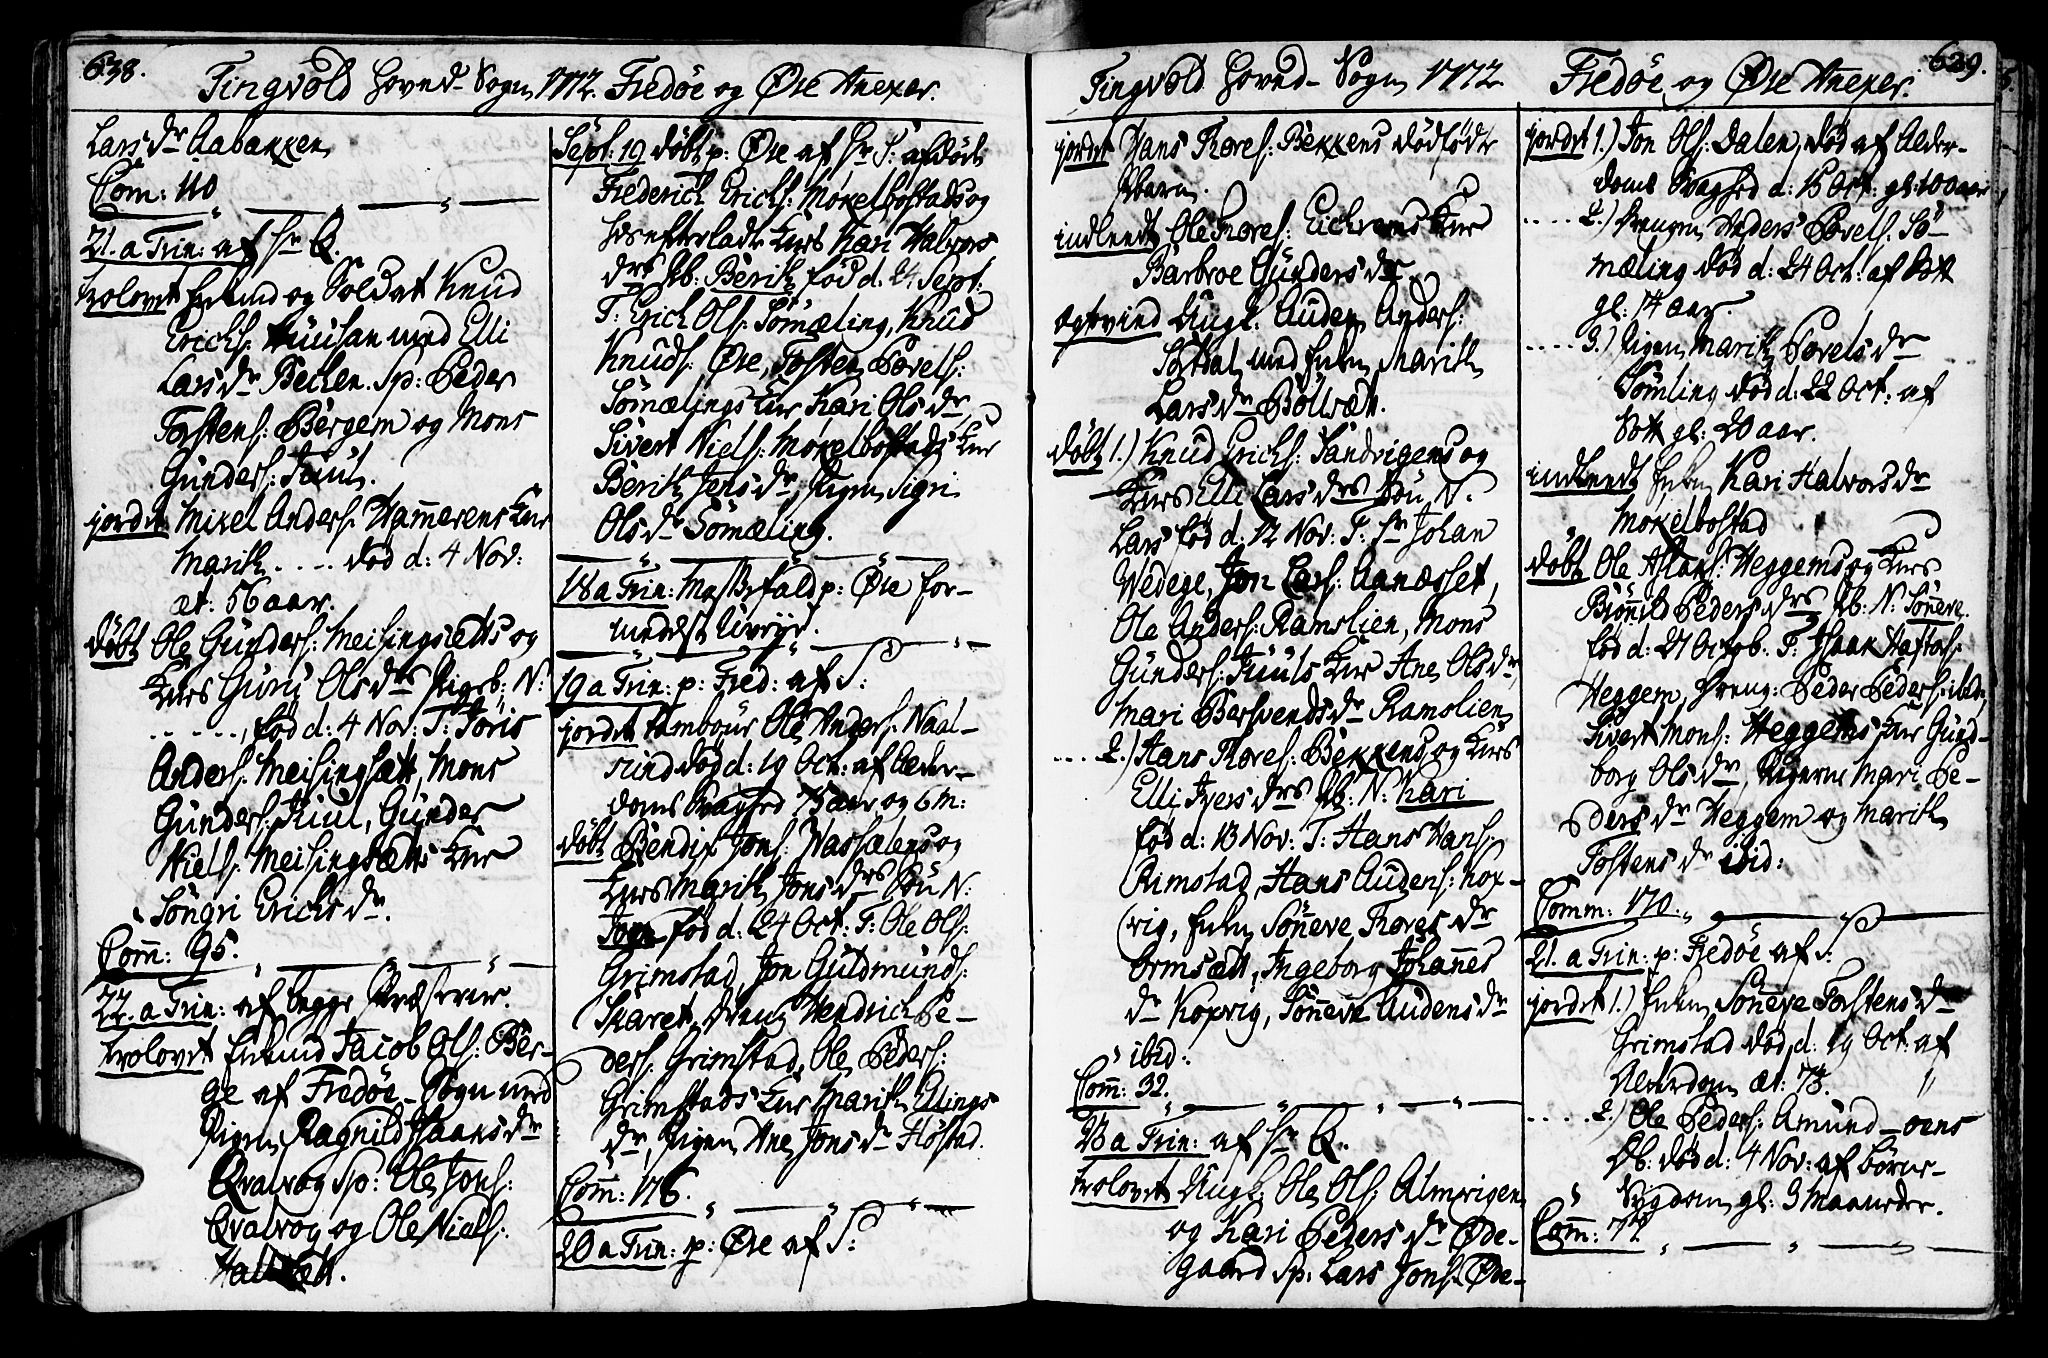 638.
Tingvold Hoved-Sogn 1772.
Lars dr Aabakken
Com: 110
21. a Trin: af Hr Q.
trolovet Enkmd og Soldat Knud
Erichs: med Elli
Lars dr Bechen. Sp: Peder
Tostens: Bergem og Mons
Gunders: Juul.
jordet Mikel Anders: Hammerens Kur
Marith . . . . død d: 4 Nov:
æt: 56 aar.
döbt Ole Gunders: Meisingsætts og
Kurs Guru Ols drs Pigeb: N:
. . . . . ., fød d: 4 Nov: T: Jöris
Anders: Meisingsætt, Mons
Gunders: Juul, Gunder
Niels: Meisingsætts Kur
Söngri Erichs dr.
Com: 95.
22. a Trin: af begge Præsterne.
trolovet Enkmd Jacob Ols: Ber-
ge af Fredöe-Sogn med
Pigen Ragnild Isaacs dr
Qvalvog Sp: Ole Jons:
Qvalvog og Ole Niels:
Hallsætt.
Fredöe og Øre Anexer.
Sept: 19 döbt p: Øre af Hr S: afdöde
Frederich Erichs: Mokelbostads og
hos efterladte Kurs Kari Halvors
drs Pb: Berith fød d. 24 Sept:
T: Erich Ols: Sömæling, Knud
Knuds: Øre, Tosten Povels:
Sömælings Kur Kari Ols dr,
Sivert Niels: Mokelbostads Kur
Berith Jens dr, Pigen Sigri
Ols dr Sömæling.
18 a Trin: Messefald p: Øre for-
medelst Uveyr.
19 a Trin: p: Fred: af S:
jordet Tambour Ole Anders: Naal-
sund död d: 19 Oct: af Alder-
doms Svaghed 75 aar og 6 m:
döbt Bendix Jons: Wassælens og
Kurs Marith Jons drs Pb: N:
fød d: 24 Oct: T: Ole Ols:
Grimstad, Jon Guldmunds:
Skaret, Dreng Hendrich Pe-
ders: Grimstad, Ole Peders:
Grimstads Kur Marith Ellings
dr, Pigen Ane Jons dr Flöstad.
Com: 176.
20 a Trin: p: Øre af S:
Tingvold Hoved-Sogn 1772
jordet Hans Tores: Bekkens dödfödte
Pbarn.
indleedt Ole Tores: Kur
Barbroe Gunders dr
egtvied Ungk: Auden Anders:
med Enken Marith
Lars dr Böllsæt.
döbt 1.) Knud Erichs: Sandvigens og
Kurs Elli Lars drs N.
Lars fød d: 12 Nov: T: Hr Johan
Wedege, Jon Lars: Aanæsset,
Ole Anders: Ramslien, Mons
Gunders: Juuls Kur Ane Ols dr,
Mari Bersvends dr Ramslien
. . . . 2.) Hans Tores: Bekkens og Kurs
Elli Ivers drs Pb: N: Kari
fød d: 13 Nov: T: Hans Hans:
Rimstad, Hans Audens: Kox-
vig, Enken Sönneve Tores dr
Ormsætt, Ingeborg Johannes
dr Koxvig, Sönneve Audens dr
ibid:
Com: 32.
23 a Trin: af Hr Q.
trolovet Ungk: Ole Ols: Almvigen
og Kari Peders dr Øde-
gaard Sp: Lars Jons: Øde-
Fredöe og Øre Anexer.
629.
jordet 1.) Jon Ols: Dalen, död af Alder-
doms Svaghed d: 15 Oct: gl: 100 aar
. . . . . 2.) Drengen Anders Povels: Sö-
mæling død d: 24 Oct: af Sott
gl: 14 aar.
. . . . 3.) Pigen Marith Povels dr
Sömling død d: 22 Oct: af
Sott gl: 20 aar.
indleedt Enken Kari Halvors dr
Mokelbostad
döbt Ole Heggems og Kurs
Biönnild Peders drs Pb: N: Sönneve
fød d: 27 Octob. T: Isaac
Heggem, Dreng: Peder Peders: ibid,
Sivert Mons: Heggems Kur Gund-
borg Ols dr, Pigerne Mari Pe-
ders dr Heggem og Marith
Tostens dr ibid:
Comm: 170.
21. a Trin: p: Fredöe af S:
jordet 1.) Enken Sönneve Tostens dr
Grimstad død d: 19 Oct: af
Alderdom æt: 73.
. . . . . 2.) Ole Peders: Amund-oens
Db: død d: 4 Nov: af Börne-
Sygdom gl: 3 Maaneder.
Com: 77.